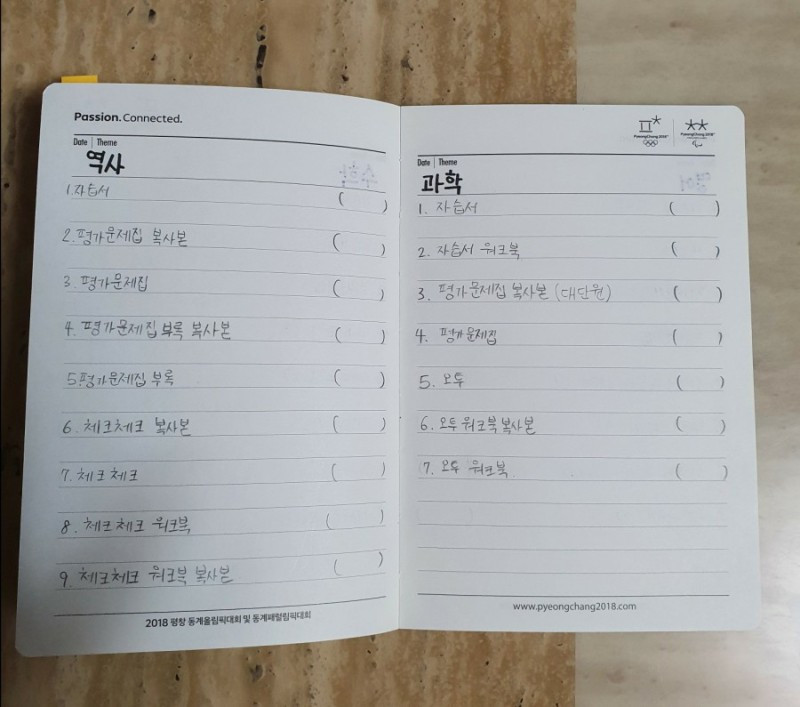 Passion. Connected.
Date | Theme
역사
1. 자습서 ( )
2. 평가문제집 복사본 ( )
3. 평가문제집 ( )
4. 평가문제집 부록 복사본 ( )
5. 평가문제집 부록 ( )
6. 체크체크 복사본 ( )
7. 체크체크 ( )
8. 체크체크 워크북 ( )
9. 체크체크 워크북 복사본 ( )
2018 평창 동계올림픽대회 및 동계패럴림픽대회
PyeongChang 2018 PyeongChang 2018
Date | Theme
과학
1. 자습서 ( )
2. 자습서 워크북 ( )
3. 평가문제집 복사본 (대단원) ( )
4. 평가문제집 ( )
5. 오투 ( )
6. 오투 워크북 복사본 ( )
7. 오투 워크북 ( )
www.pyeongchang2018.com